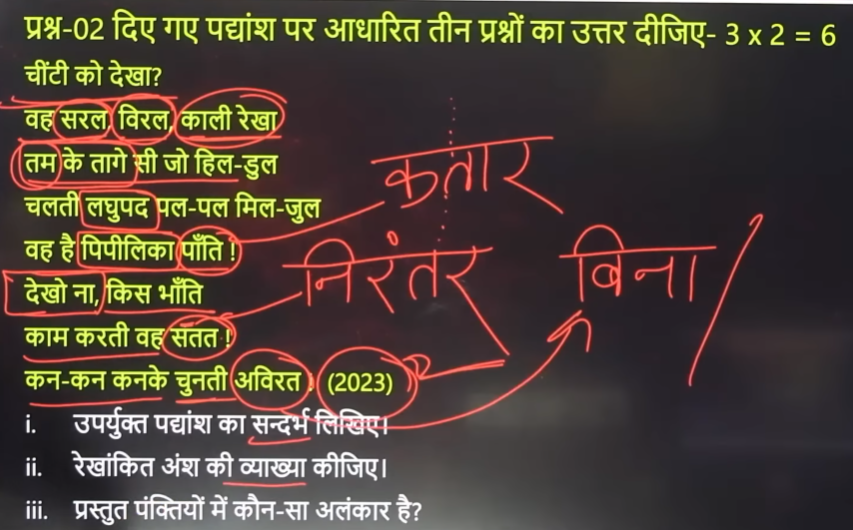 प्रश्न-02 दिए गए पद्यांश पर आधारित तीन प्रश्नों का उत्तर दीजिए- 3 x 2 = 6
चींटी को देखा?
वह सरल, विरल, काली रेखा
तम के तागे सी जो हिल-डुल
कतार
चलती लघुपद पल-पल मिल-जुल
वह है पिपीलिका पाँति !
निरंतर बिना /
देखो ना, किस भाँति
काम करती वह सतत !
कन-कन कनके चुनती अविरत ! (2023)
i. उपर्युक्त पद्यांश का सन्दर्भ लिखिए।
ii. रेखांकित अंश की व्याख्या कीजिए।
iii. प्रस्तुत पंक्तियों में कौन-सा अलंकार है?